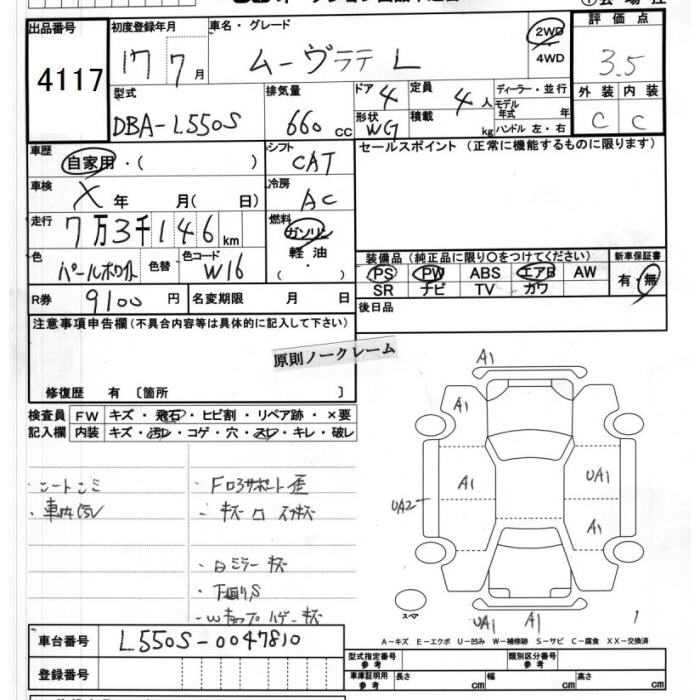 出品番号 初度登録年月 車名・グレード 2WD ・ 4WD 評価点
4117 17年 7月 ムーヴラテ L 3.5
型式 排気量 ドア 4 定員 4人 ディーラー・並行 外装 内装
DBA-L550S 660cc 形状 WG 積載 kg モデル年式 年 ハンドル 左・右 C C
車歴 シフト セールスポイント (正常に機能するものに限ります)
自家用・( ) CAT
車検 冷房
X 年 月( 日) AC
走行 燃料
7万3千146km ガソリン
色 色替 色コード 軽油
パールホワイト W16 ( ・ )
装備品(純正品に限り○をつけてください) 新車保証書
PS PW ABS エアB AW 有・無
SR ナビ TV カワ
R券 9100円 名変期限 月 日 後日品
注意事項申告欄(不具合内容等は具体的に記入して下さい)
原則ノークレーム
修復歴 有 〔箇所 〕
検査員 FW キズ・飛石・ヒビ割・リペア跡・×要
記入欄 内装 キズ・汚レ・コゲ・穴・スレ・キレ・破レ
A1
A1
A1 UA1
UA2 A1
・シートシミ ・Fロアサポート歪
・車内汚レ
・ロミラー キズ
・下廻りS
スペア
UA1 A1
A-キズ E-エクボ U-凹み W-補修跡 S-サビ C-腐食 XX-交換済
車台番号 L550S-0047810
型式指定番号 参考 類別区分番号 参考
登録番号 車庫証明用 参考 長さ cm 幅 cm 高さ cm